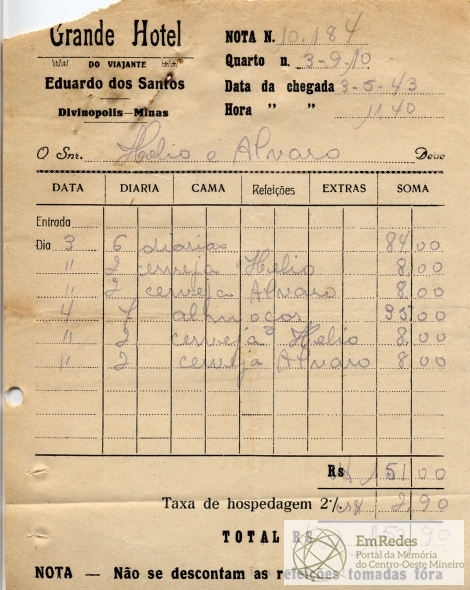 Grande Hotel
DO VIAJANTE
Eduardo dos Santos
Divinopolis—Minas
NOTA N. 10.184
Quarto n. 3-9-10
Data da chegada 3-5-43
Hora " " 11 40
O Snr. Helio e Alvaro Deve
DATA DIARIA CAMA Refeições EXTRAS SOMA
Entrada
Dia 3 6 diarias 84,00
" 2 cerveja Helio 8,00
" 2 cerveja Alvaro 8,00
4 7 almoços 35,00
" 2 cerveja Helio 8,00
" 2 cerveja Alvaro 8,00
Rs 151,00
Taxa de hospedagem 2%. 2,90
TOTAL RS
NOTA — Não se descontam as refeições tomadas fóra
EmRedes
Portal da Memória
do Centro-Oeste Mineiro